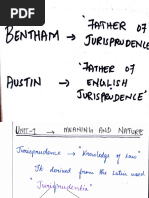 BENTHAM → "FATHER OF JURISPRUDENCE"
AUSTIN → "FATHER OF ENGLISH JURISPRUDENCE"
UNIT-1 → MEANING AND NATURE
Jurisprudence → "Knowledge of Law"
It derived from the Latin used
"Jurisprudentia"